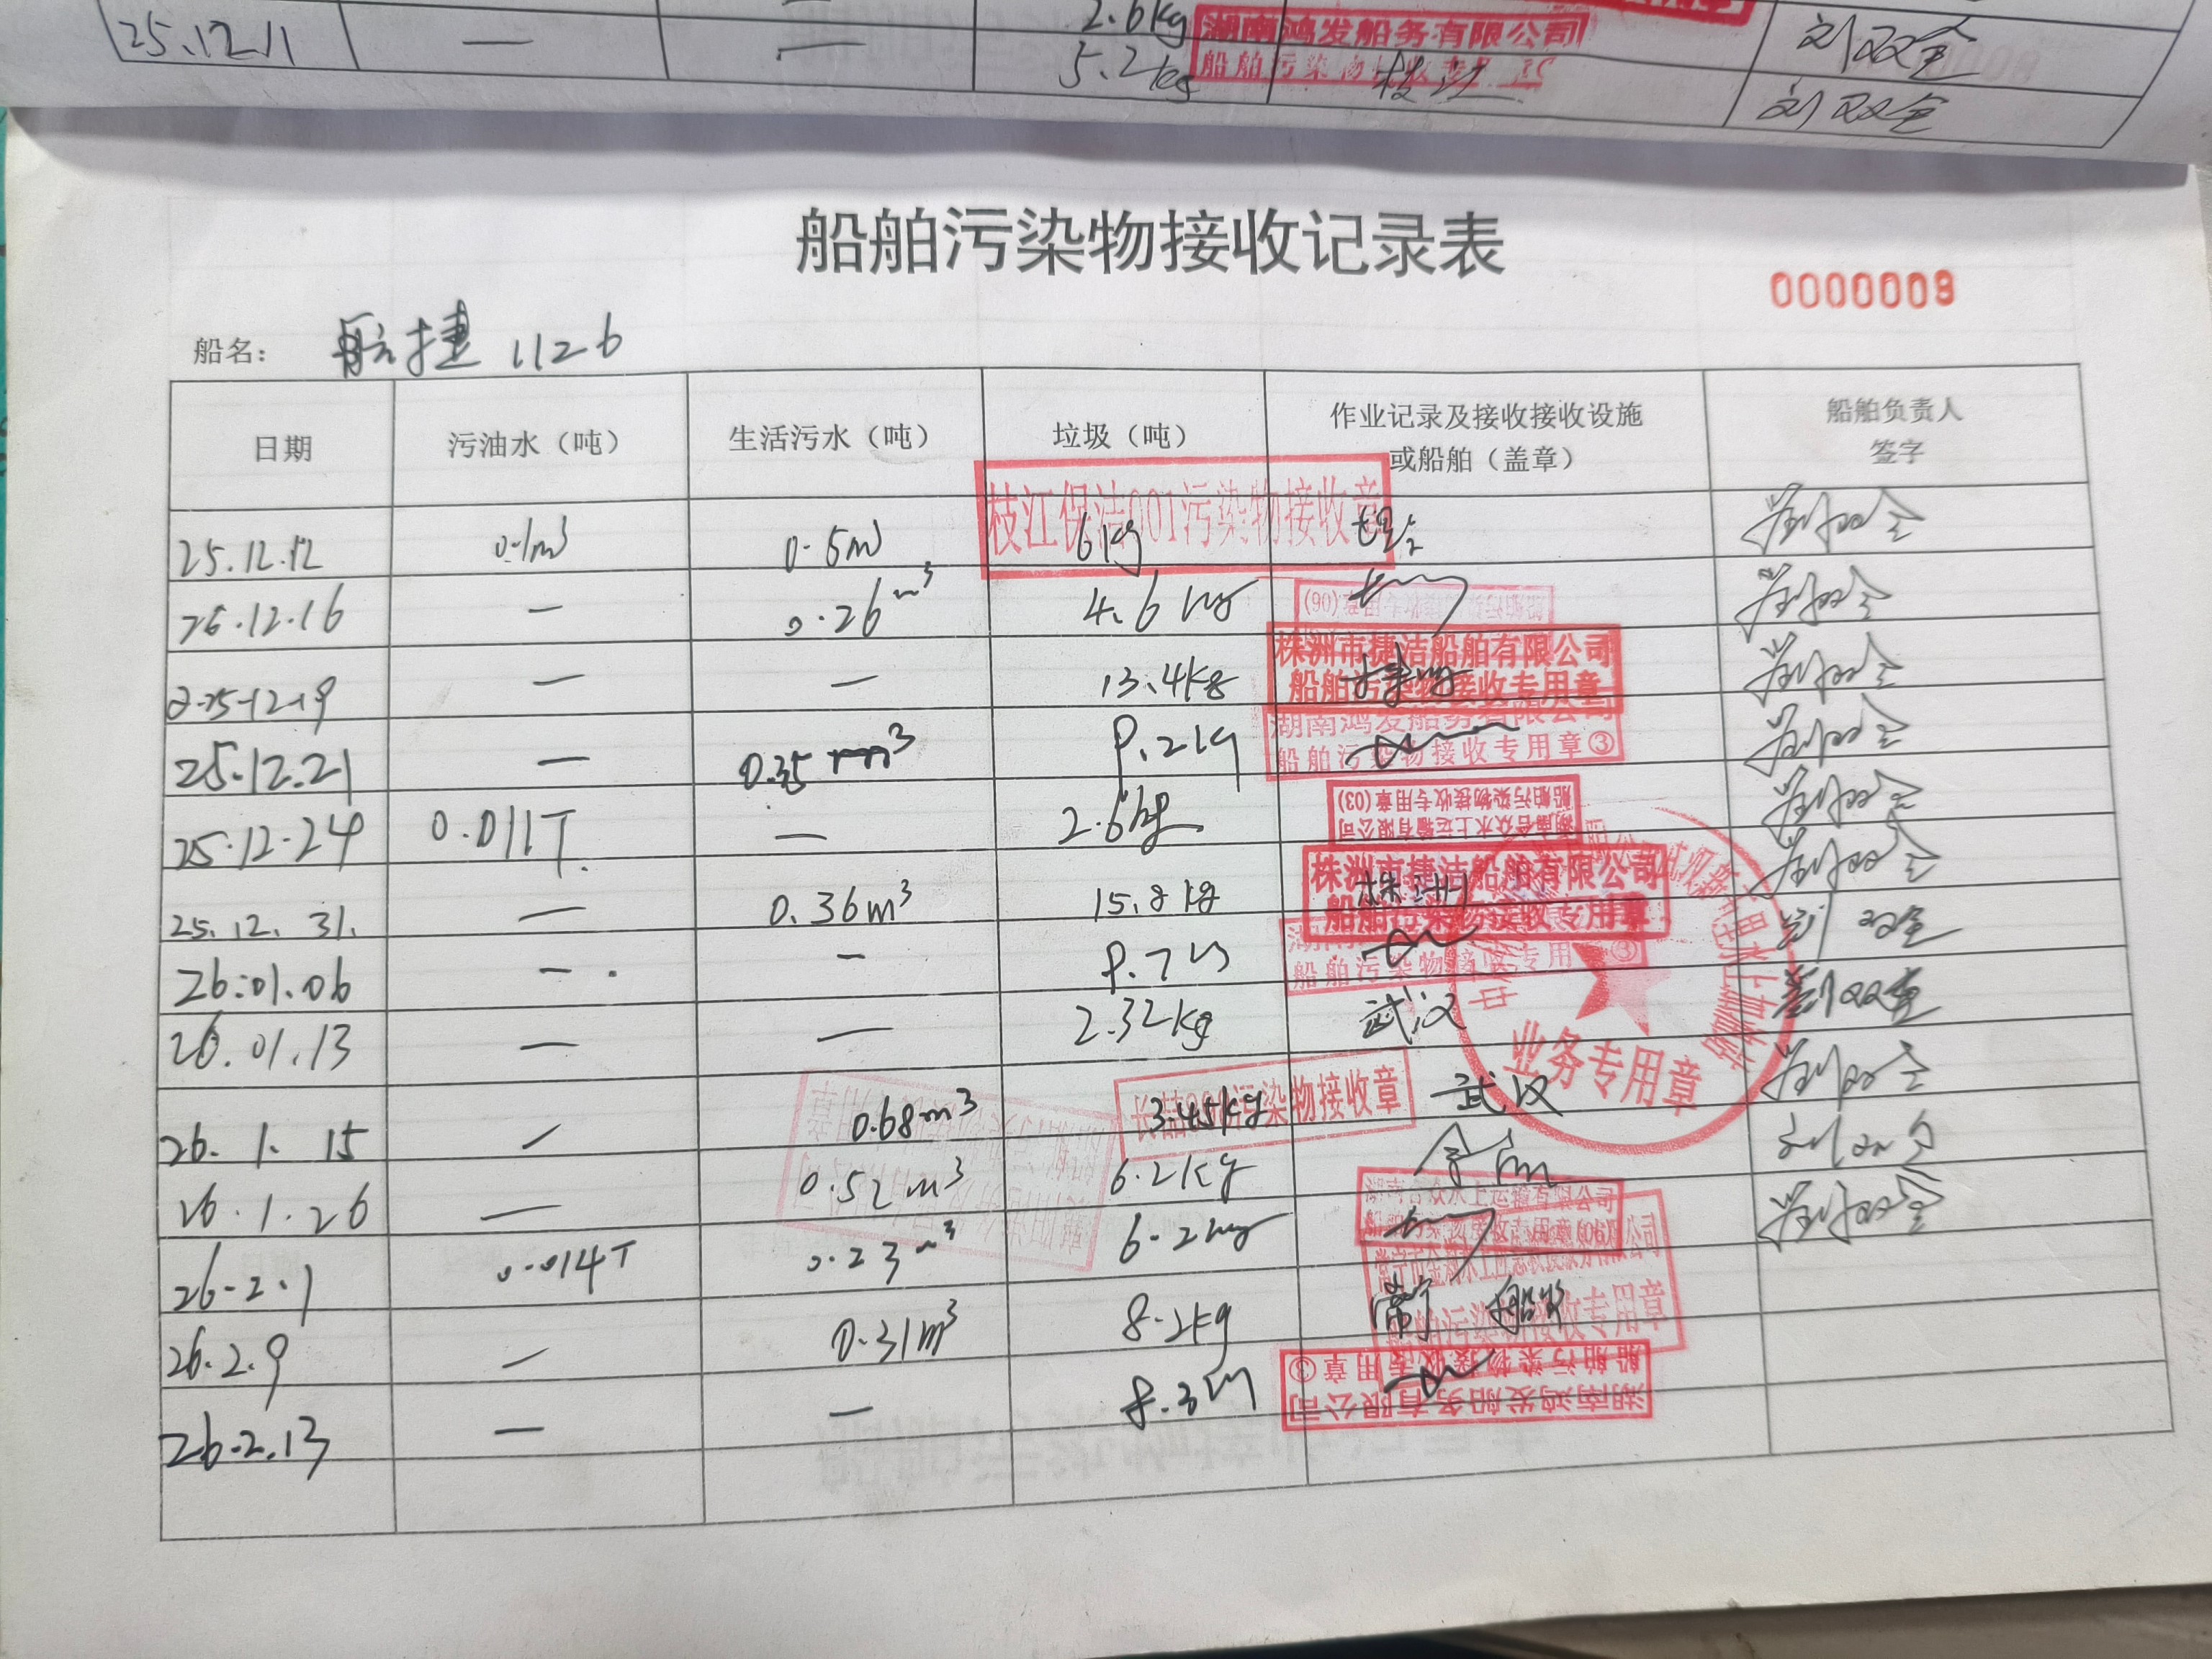 2.6kg 湖南鸿发船务有限公司
25.12.11 — — 5.2kg 船舶污染物接收专用章 枝江 刘双全
刘双全
船舶污染物接收记录表
0000009
船名： 航捷 1126
日期 污油水（吨） 生活污水（吨） 垃圾（吨） 作业记录及接收接收设施 船舶负责人
或船舶（盖章） 签字
枝江保洁001污染物接收章
25.12.12 0.1m³ 0.5m³ 6kg 刘双全
26.12.16 — 0.26m³ 4.6kg 刘双全
船舶污染物接收专用章(06)
株洲市捷洁船舶有限公司
船舶污染物接收专用章
2.25-12-19 — — 13.4kg 刘双全
湖南鸿发船务有限公司
船舶污染物接收专用章③
25.12.21 — 0.35m³ 8.2kg 刘双全
湖南合众水上运输有限公司
船舶污染物接收专用章(03)
25.12.24 0.011T. — 2.6kg 刘双全
株洲市捷洁船舶有限公司
船舶污染物接收专用章
25.12.31. — 0.36m³ 15.8kg 株洲 刘双全
船舶污染物接收专用章③
26.01.06 — — 8.7kg 刘双全
26.01.13 — — 2.32kg 武汉 刘双全
业务专用章
26.1.15 — 0.68m³ 3.45kg 武汉 刘双全
污染物接收章
26.1.26 — 0.52m³ 6.2kg 刘双全
湖南合众水上运输有限公司
船舶污染物接收专用章(06)
26.2.1 0.014T 0.23m³ 6.2kg 刘双全
船舶污染物接收专用章
26.2.9 — 0.31m³ 8.2kg 常宁 船
湖南鸿发船务有限公司
船舶污染物接收专用章③
26.2.13 — — 8.3kg